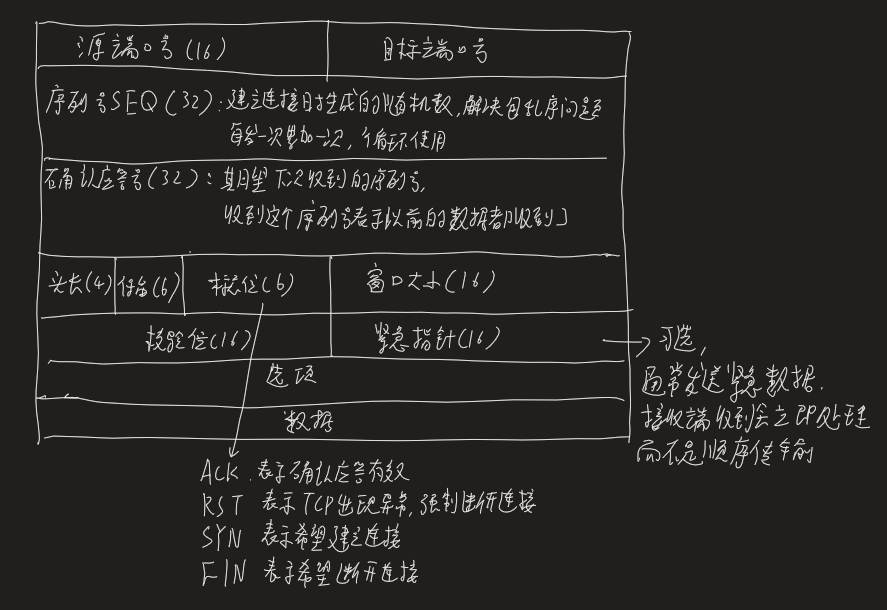 源端口号(16)
目标端口号
序列号SEQ(32):建立连接时生成的随机数,解决包乱序问题
每发一次累加一次,循环使用
确认应答号(32):期望下次收到的序列号,
收到这个序列号表示以前的数据都收到了
头长(4)
保留(6)
标志位(6)
窗口大小(16)
校验位(16)
紧急指针(16)
可选,
通常发送紧急数据.
接收端收到会立即处理
而不是顺序传输
选项
数据
ACK 表示确认应答有效
RST 表示TCP出现异常,强制断开连接
SYN 表示希望建立连接
FIN 表示希望断开连接